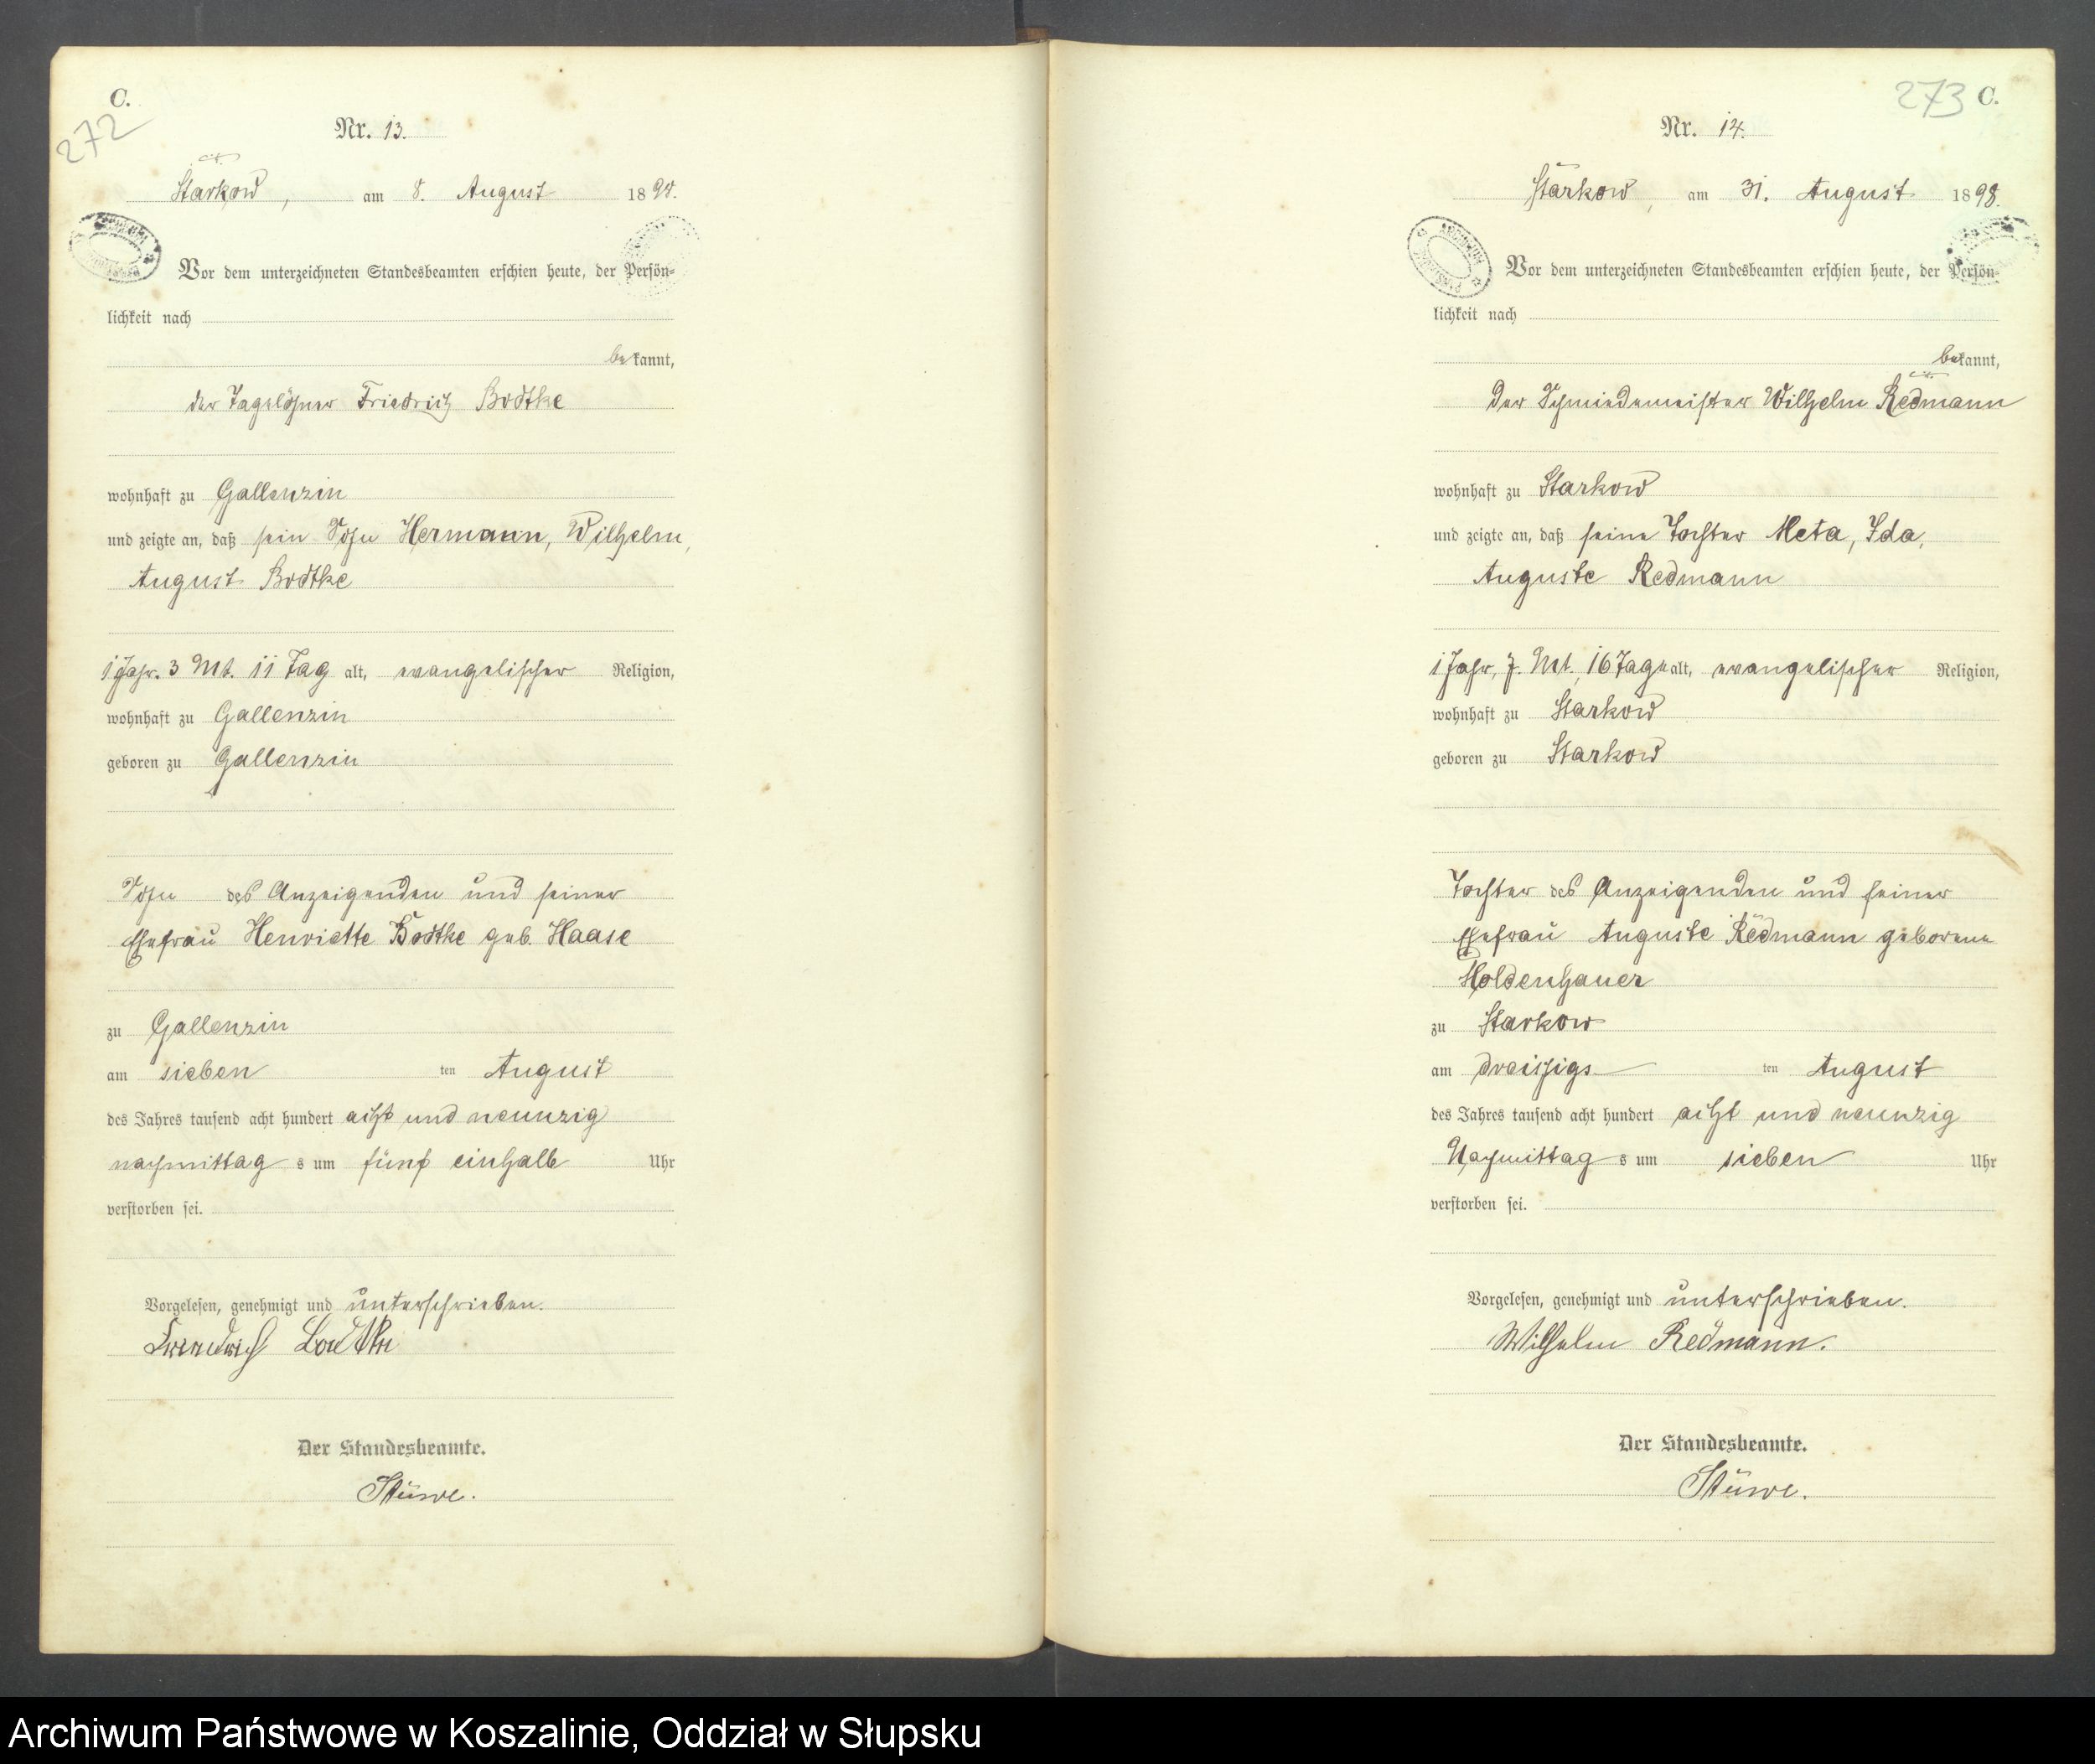 C.
272
Nr. 13.
Starkow, am 8. August 1898.
Vor dem unterzeichneten Standesbeamten erschien heute, der Persön-
lichkeit nach
bekannt,
der Tagelöhner Friedrich Bodtke
wohnhaft zu Gallenzin
und zeigte an, daß sein Sohn Hermann, Wilhelm,
August Bodtke
1 Jahr. 3 Mt. 11 Tag alt, evangelischer Religion,
wohnhaft zu Gallenzin
geboren zu Gallenzin
Sohn des Anzeigenden und seiner
Ehefrau Henriette Bodtke geb. Haase
zu Gallenzin
am sieben ten August
des Jahres tausend acht hundert acht und neunzig
nachmittag s um fünf einhalb Uhr
verstorben sei.
Vorgelesen, genehmigt und unterschrieben.
Der Standesbeamte.
Stüwe.
273 C.
Nr. 14.
Starkow, am 31. August 1898.
Vor dem unterzeichneten Standesbeamten erschien heute, der Persön-
lichkeit nach
bekannt,
der Schmiedemeister Wilhelm Redmann
wohnhaft zu Starkow
und zeigte an, daß seine Tochter Meta, Ida,
Auguste Redmann
1 Jahr, 7. Mt., 16 Tage alt, evangelischer Religion,
wohnhaft zu Starkow
geboren zu Starkow
Tochter des Anzeigenden und seiner
Ehefrau Auguste Redmann geborene
Moldenhauer
zu Starkow
am dreissigs ten August
des Jahres tausend acht hundert acht und neunzig
Nachmittag s um sieben Uhr
verstorben sei.
Vorgelesen, genehmigt und unterschrieben.
Wilhelm Redmann.
Der Standesbeamte.
Stüwe.
Archiwum Państwowe w Koszalinie, Oddział w Słupsku